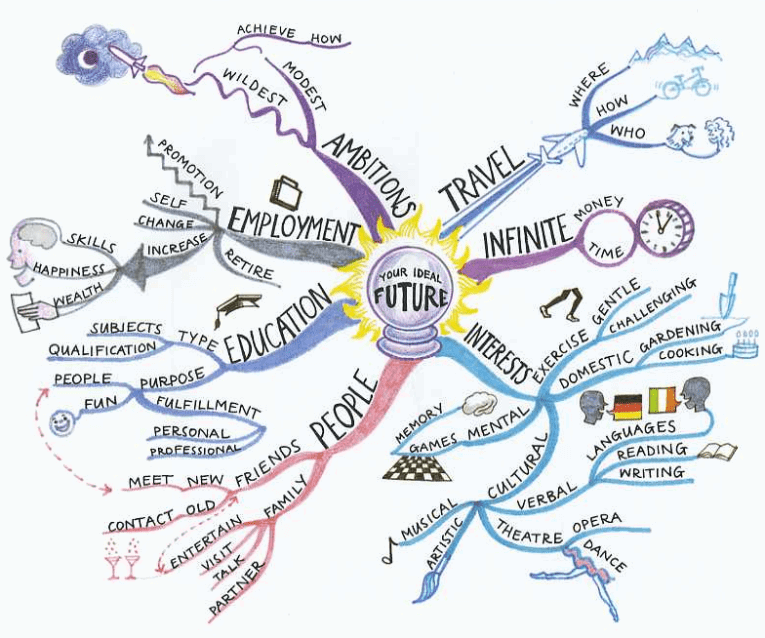 YOUR IDEAL
FUTURE
TRAVEL
WHERE
HOW
WHO
INFINITE
MONEY
TIME
INTERESTS
EXERCISE
GENTLE
CHALLENGING
DOMESTIC
GARDENING
COOKING
MENTAL
MEMORY
GAMES
CULTURAL
VERBAL
LANGUAGES
READING
WRITING
THEATRE
OPERA
DANCE
ARTISTIC
MUSICAL
PEOPLE
FRIENDS
MEET NEW
CONTACT OLD
FAMILY
ENTERTAIN
VISIT
TALK
PARTNER
EDUCATION
TYPE
SUBJECTS
QUALIFICATION
PURPOSE
PEOPLE
FUN
FULFILLMENT
PERSONAL
PROFESSIONAL
EMPLOYMENT
PROMOTION
SELF
CHANGE
INCREASE
SKILLS
HAPPINESS
WEALTH
RETIRE
AMBITIONS
MODEST
WILDEST
ACHIEVE HOW